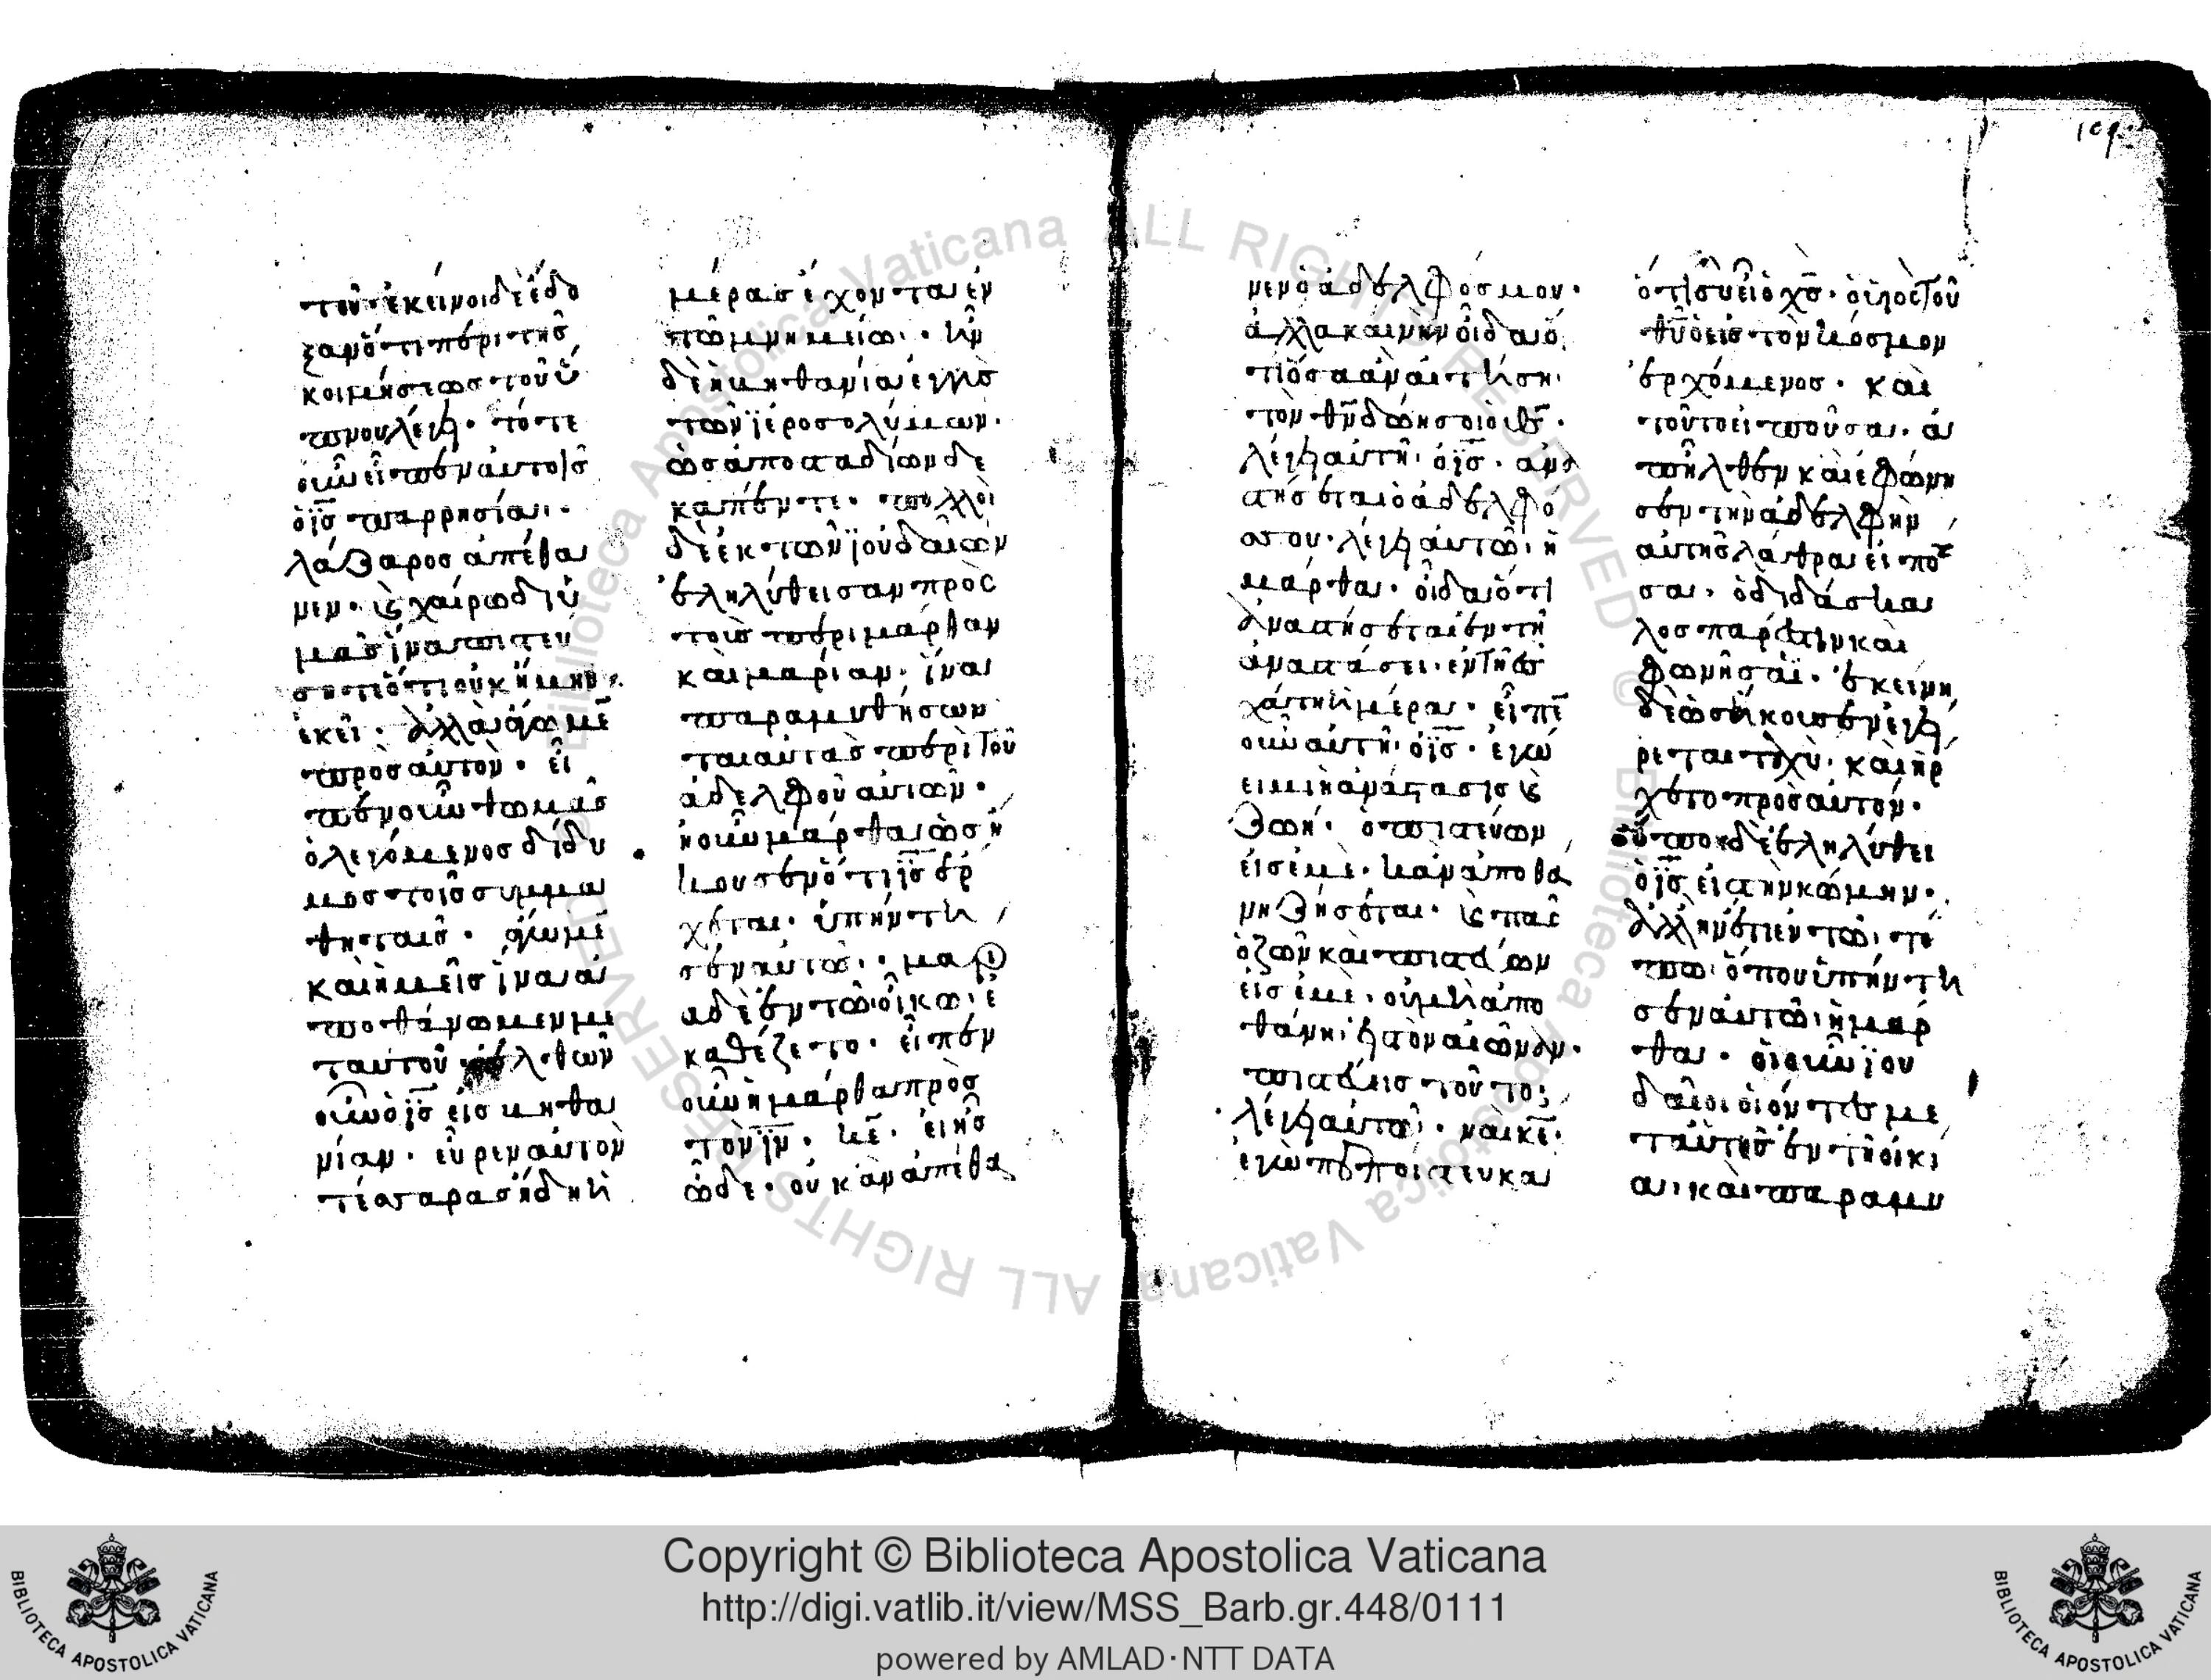 του· ἐκεῖνοι δὲ ἔδο
ξαν ὅτι περὶ τῆς
κοιμήσεως τοῦ ὕ
πνου λέγει· τότε
οὖν εἶπεν αὐτοῖς
ὁ ῑς̄ παρρησίαι·
λάζαρος ἀπέθα
νεν· ϗ χαίρω δι' ὑ
μᾶς ἵνα πιστεύ
σητε ὅτι οὐκ ἤμην
ἐκεῖ· ἀλλὰ ἄγωμε̄
πρὸς αὐτόν· εἶ
πεν οὖν θωμᾶς
ὁ λεγόμενος δίδυ
μος τοῖς συμμα
θηταῖς· ἄγωμε̄
καὶ ἡμεῖς ἵνα ἀ
ποθάνωμεν με
τ αὐτοῦ ἐλθὼν
οὖν ὁ ῑς̄ εἰς βηθα
νίαν· εὗρεν αὐτὸν
τέσσαρας ἤδη ἡ
μέρας ἔχοντα ἐν
τῶ μνημείω· ἦν
δὲ ἡ βηθανία ἐγγὺς
τῶν ἱεροσολύμων·
ὡς ἀπὸ σταδίων δε
καπέντε· πολλοὶ
δὲ ἐκ τῶν ἰουδαίων
ἐληλύθεισαν πρὸς
τοὺς περὶ μάρθαν
καὶ μαρίαν· ἵνα
παραμυθήσων
ται αὐτὰς περὶ τοῦ
ἀδελφοῦ αὐτῶν·
ἡ οὖν μάρθα ὡς ἤ
κουσεν ὅτι ῑς̄ ἔρ
χεται· ὑπήντη
σεν αὐτῶ· μαρί
α δὲ ἐν τῶ οἴκω ἐ
καθέζετο· εἶπεν
οὖν ἡ μάρθα πρὸς
τὸν ῑν̄· κε̄· εἰ ἦς
ὧδε· οὐκ ἂν ἀπέθα
νεν ὁ ἀδελφός μου·
ἀλλὰ καὶ νῦν οἶδα ὅ
τι ὅσα ἂν αἰτήση
τὸν θν̄ δώσῃ σοι ὁ θς̄·
λέγει αὐτῆ ὁ ῑς̄· ἀνα
στήσεται ὁ ἀδελφό
ς σου· λέγει αὐτῶ ἡ
μάρθα· οἶδα ὅτι
ἀναστήσεται ἐν τῆ
ἀναστάσει ἐν τῆ ἐσ
χάτη ἡμέρα· εἶπε̄
οὖν αὐτῆ ὁ ῑς̄· ἐγώ
εἰμι ἡ ἀνάστασις ϗ
ζωή· ὁ πιστεύων
εἰς ἐμὲ· κἂν ἀποθά
νη ζήσεται· ϗ πᾶς
ὁ ζῶν καὶ πιστεύων
εἰς ἐμὲ· οὐ μὴ ἀπο
θάνη εἰς τὸν αἰῶνα·
πιστεύεις τοῦτο;
λέγει αὐτῶ· ναὶ κε̄·
ἐγὼ πεπίστευκα
ὅτι σὺ εἶ ὁ χς̄· ὁ υἱὸς τοῦ
θῡ ὁ εἰς τὸν κόσμον
ἐρχόμενος· καὶ
τοῦτο εἰποῦσα· ἀ
πῆλθεν καὶ ἐφώνη
σεν τὴν ἀδελφὴν
αὐτῆς λάθρα εἰποῦ
σα· ὁ διδάσκα
λος πάρεστιν καὶ
φωνῆ σαι· ἐκείνη
δὲ ὡς ἤκουσεν ἐγεί
ρεται ταχὺ· καὶ ἤρ
χετο πρὸς αὐτόν·
οὔπω δὲ ἐληλύθει
ὁ ῑς̄ εἰς τὴν κώμην·
ἀλλ' ἦν ἔτι ἐν τῶ τό
πω ὅπου ὑπήντη
σεν αὐτῶ ἡ μάρ
θα· οἱ οὖν ἰου
δαῖοι οἱ ὄντες με
τ αὐτῆς ἐν τῆ οἰκί
α· καὶ παραμυ
109
Copyright © Biblioteca Apostolica Vaticana
http://digi.vatlib.it/view/MSS_Barb.gr.448/0111
powered by AMLAD·NTT DATA